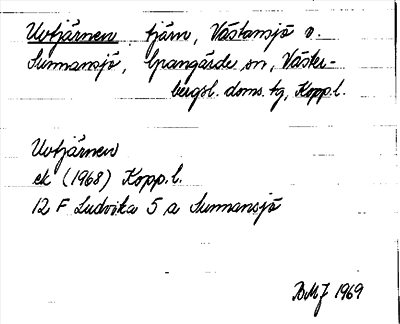 Uvtjärnen, tjärn, Västansjö o.
Sunnansjö, Grangärde sn, Väster-
bergsl. doms. tg, Kopp. l.
Uvtjärnen
ek (1968) Kopp. l.
12 F Ludvika 5 a Sunnansjö
BMJ 1969